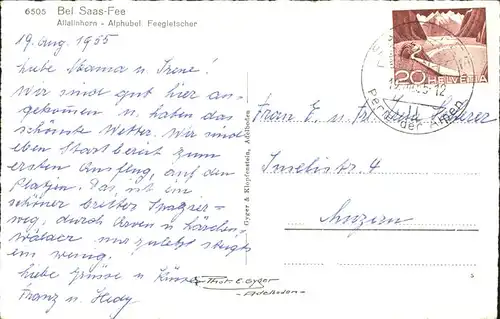 6505 Bel Saas-Fee
Allalinhorn - Alphubel, Feegletscher
19. Aug. 1955
Liebe Mama u. Irene!
Wir sind gut hier an-
gekommen u. haben das
schönste Wetter. Wir sind
eben Startbereit zum
ersten Ausflug, auf den
Platjen. Das ist ein
schöner breiter Spazier-
weg, durch Arven u Lärchen-
wälder und zuletzt steigts
ein wenig.
Liebe Grüsse u. Küsse
Franz u. Hedy
Gyger & Klopfenstein, Adelboden
Phot. E. Gyger
-Adelboden-
20 HELVETIA
Perle der Alpen
Franz E. u. Frl.
Inselistr. 4
Luzern